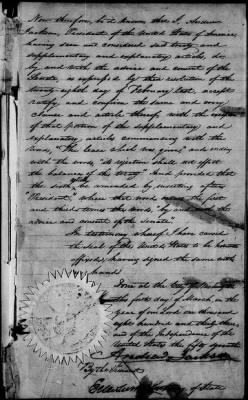 Now therefore, be it known that I, Andrew
Jackson, President of the United States of America,
having seen and considered said treaty and
supplementary and explanatory article, do
by and with the advice and consent of the
Senate as expressed by their resolution of the
twenty eighth day of February last, accept
ratify, and confirm the same and every
clause and article thereof, with the
of that portion of the supplementary and
explanatory article commencing with the
words "The lease which was given" and ending
with the words "its rejection shall not affect
the balance of the treaty" And provided that
the sixth, be amended by inserting after
"President", where that word occurs the first
and third times the words, "and with the
advice and consent of the senate".
In testimony whereof I have caused
the seal of the United States to be hereto
affixed, having signed the same with
hand
Done at the City of Washington
the day of March, in the
year of our Lord one thousand
eight hundred and thirty three
of the Independence of the
United States the fifty seventh
Andrew Jackson
By the President
of State